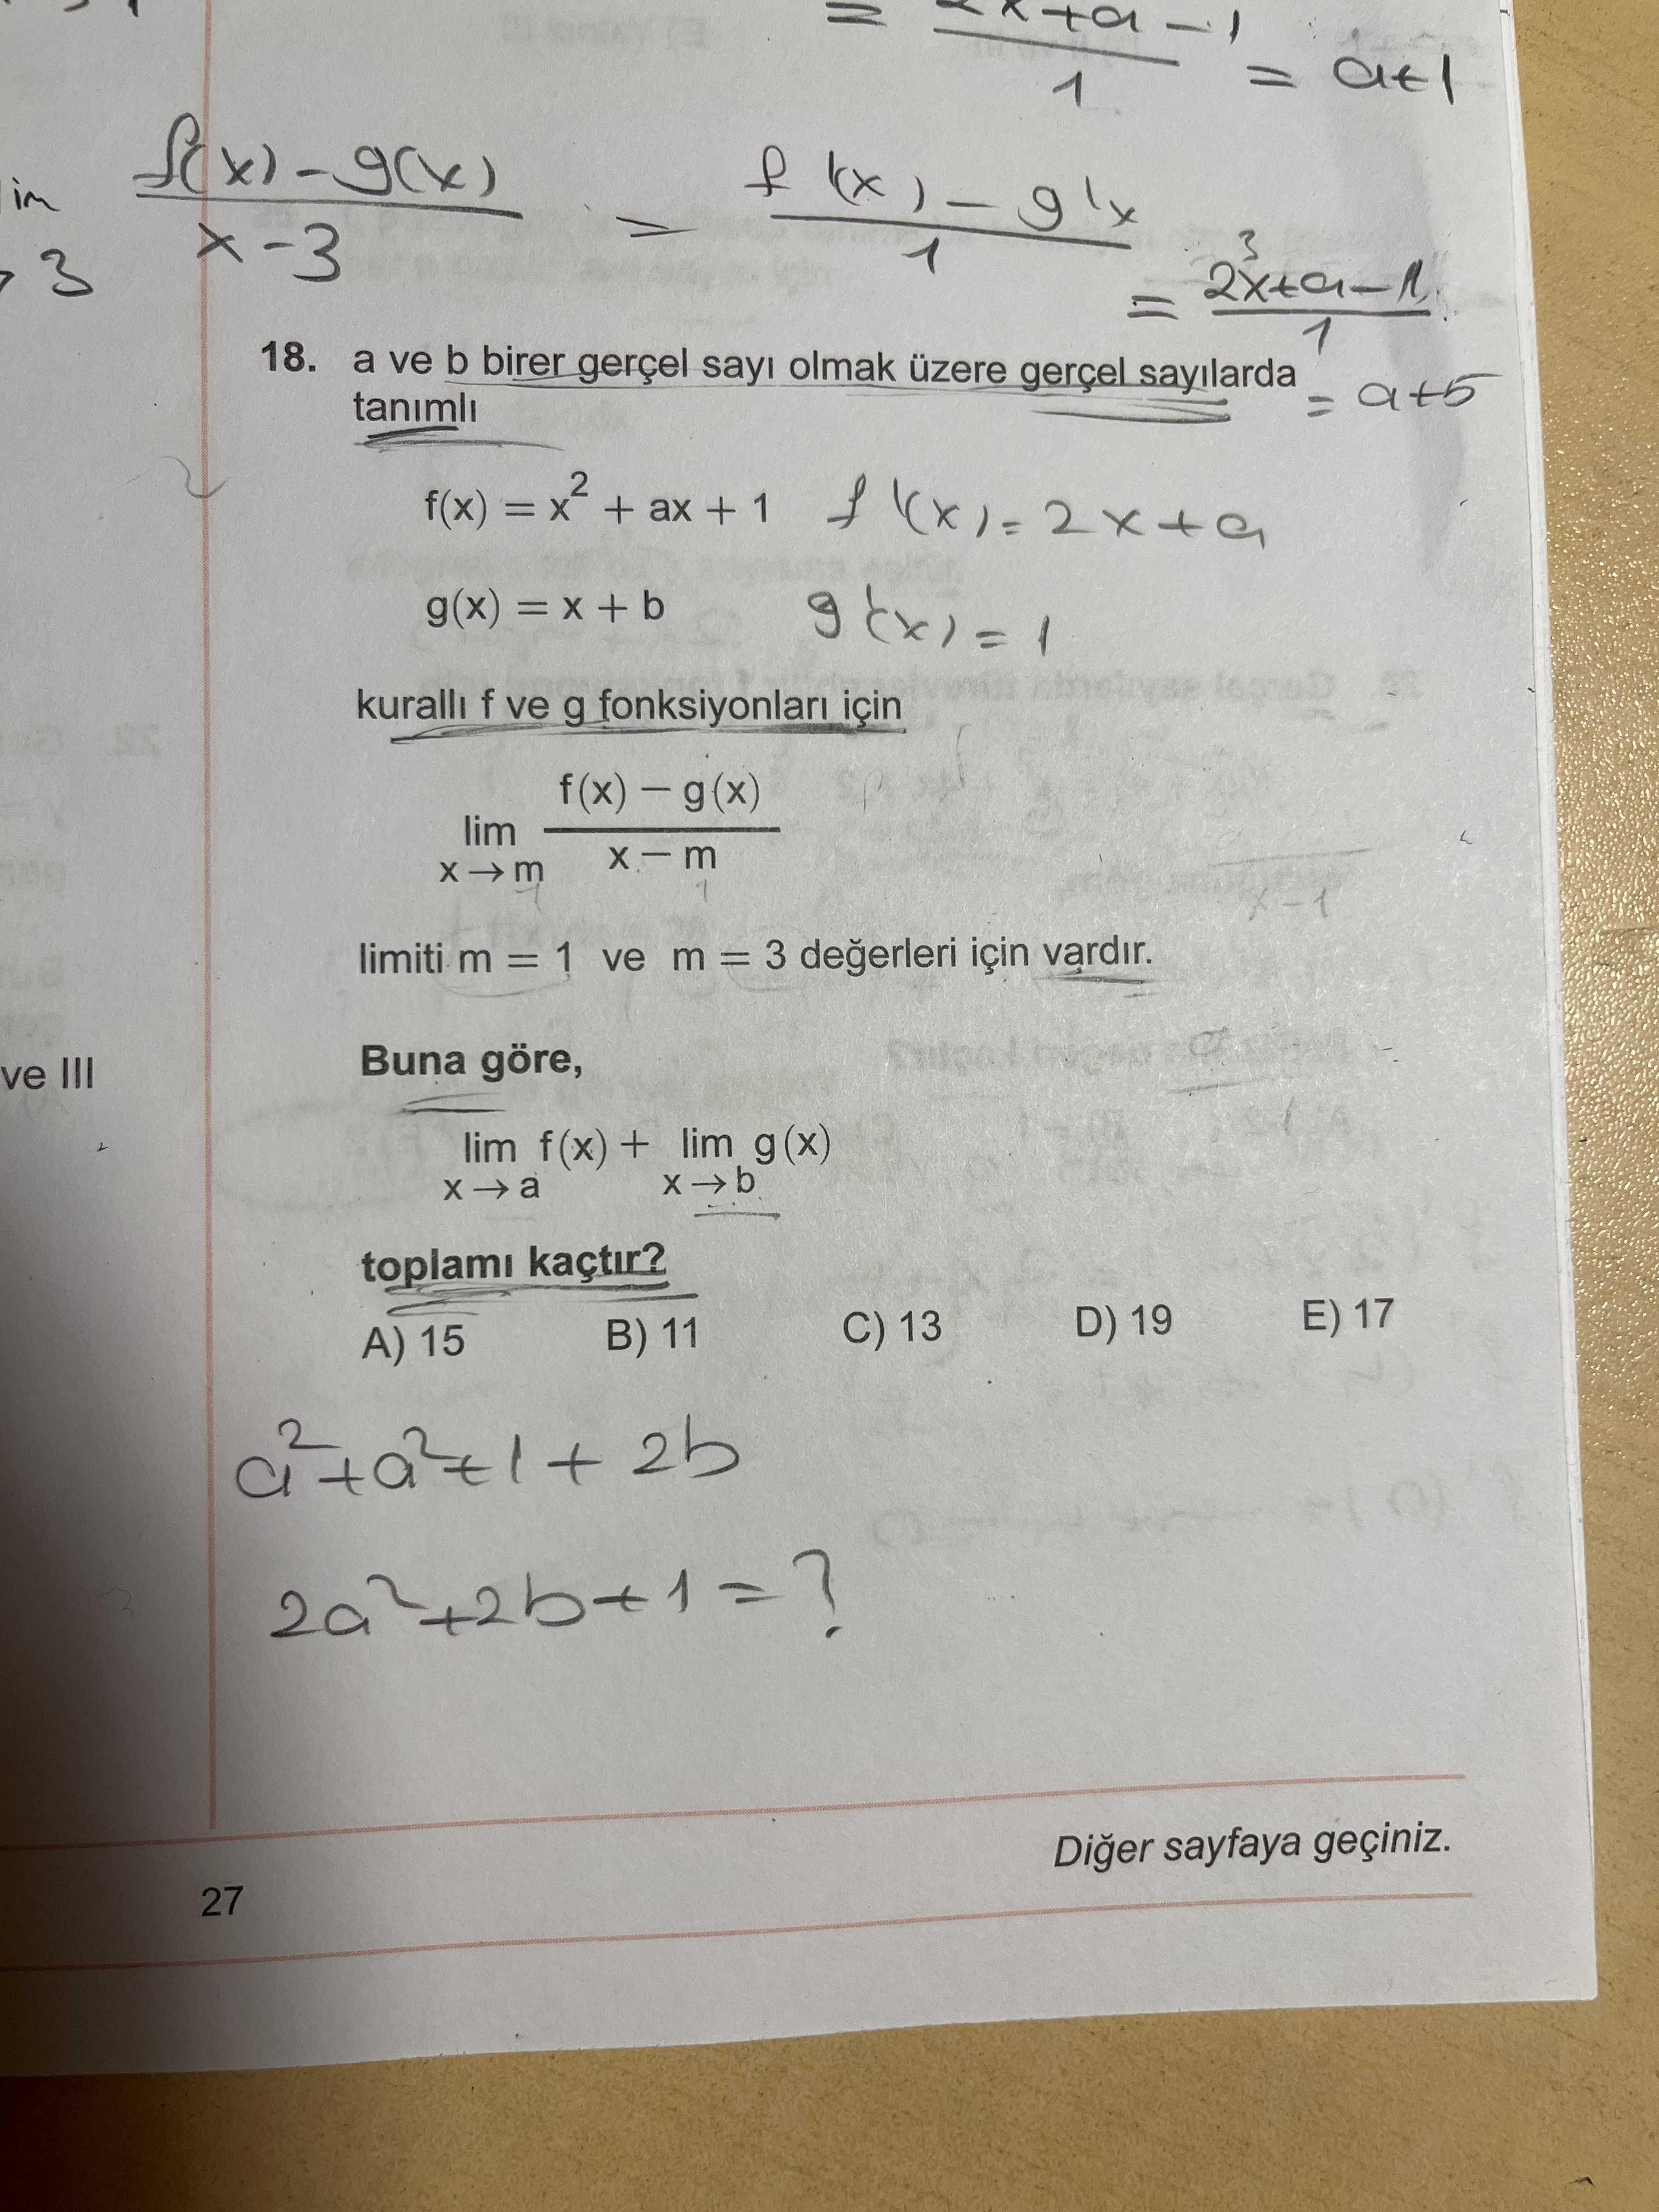 = 2x+a-1 / 1 = a+1
f(x)-g(x) / x-3 = f'(x)-g'x / 1
3
= 2x+a-1 / 1
3
= a+5
18. a ve b birer gerçel sayı olmak üzere gerçel sayılarda
tanımlı
f(x) = x² + ax + 1 f'(x) = 2x+a
g(x) = x + b g'(x) = 1
kurallı f ve g fonksiyonları için
lim x→m f(x) − g(x) / x − m
limiti m = 1 ve m = 3 değerleri için vardır.
x-1
Buna göre,
ve III
lim x→a f(x) + lim x→b g(x)
toplamı kaçtır?
A) 15 B) 11 C) 13 D) 19 E) 17
a²+a²+1+2b
2a²+2b+1=?
Diğer sayfaya geçiniz.
27